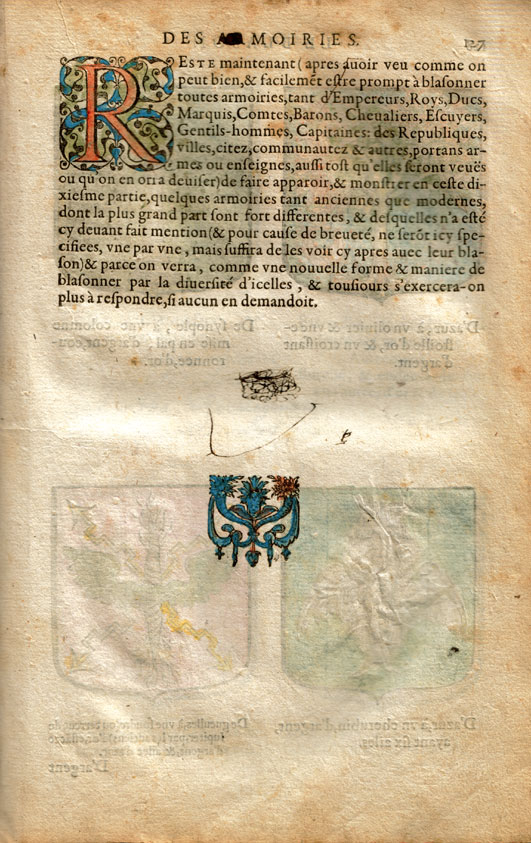 DES ARMOIRIES. 127
RESTE maintenant (apres auoir veu comme on
peut bien, & facilemẽt estre prompt à blasonner
toutes armoiries, tant d'Empereurs, Roys, Ducs,
Marquis, Comtes, Barons, Cheualiers, Escuyers,
Gentils-hommes, Capitaines: des Republiques,
villes, citez, communautez & autres, portans ar-
mes ou enseignes, aussi tost qu'elles seront veuës
ou qu'on en orra deuiser) de faire apparoir, & monstrer en ceste di-
xiesme partie, quelques armoiries tant anciennes que modernes,
dont la plus grand part sont fort differentes, & desquelles n'a esté
cy deuant fait mention (& pour cause de breueté, ne serõt icy spe-
cifiees, vne par vne, mais suffira de les voir cy apres auec leur bla-
son) & parce on verra, comme vne nouuelle forme & maniere de
blasonner par la diuersité d'icelles, & tousiours s'exercera-on
plus à respondre, si aucun en demandoit.
De synople, à vne colomne
mise en pal, d'argent, cou-
ronnee, d'or.
D'azur, à vn oliuier & vne
stoille d'or, & vn croissant
d'argent.
D'azur, à vn cherubin, d'argent,
ayant six aisles.
D'argent